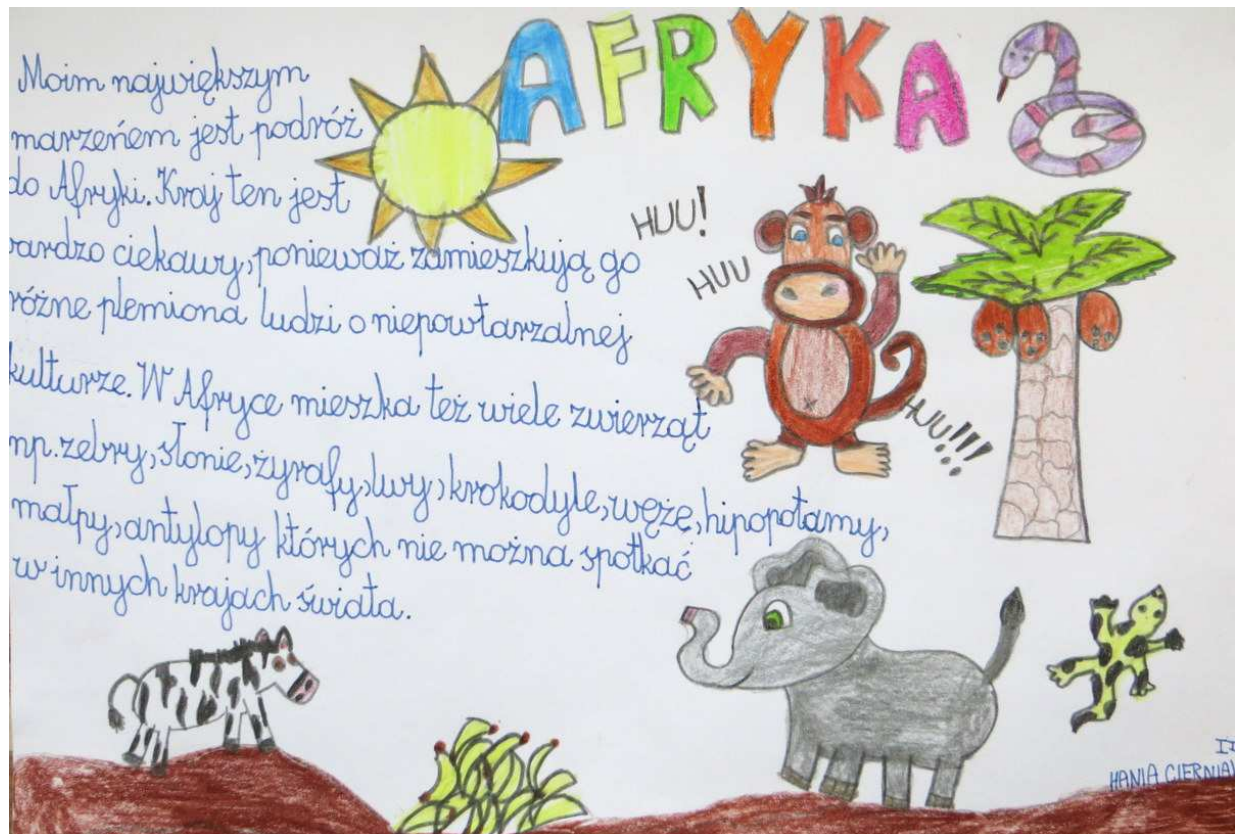 AFRYKA
Moim największym
marzeńem jest podróż
do Afryki. Kraj ten jest
bardzo ciekawy, ponieważ zamieszkują go
różne plemiona ludzi o niepowtarzalnej
kulturze. W Afryce mieszka też wiele zwierząt
np. zebry, słonie, żyrafy, lwy, krokodyle, węże, hipopotamy,
małpy, antylopy których nie można spotkać
w innych krajach świata.
HUU!
HUU
HUU!!!
HANIA